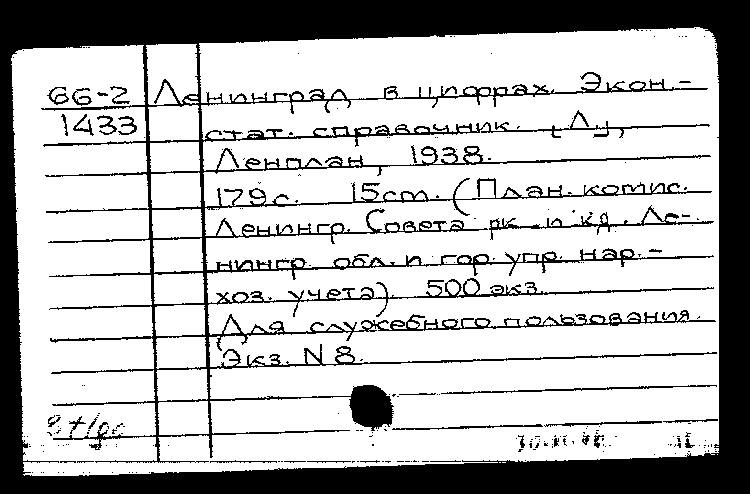 66-2 Ленинград в цифрах. Экон.-
1433 стат. справочник. [Л.],
Ленплан, 1938.
179 с. 15 см. (План. комис.
Ленингр. Совета рк. и кд. Ле-
нингр. обл. и гор. упр. нар.-
хоз. учета). 500 экз.
Для служебного пользования.
Экз. N 8.